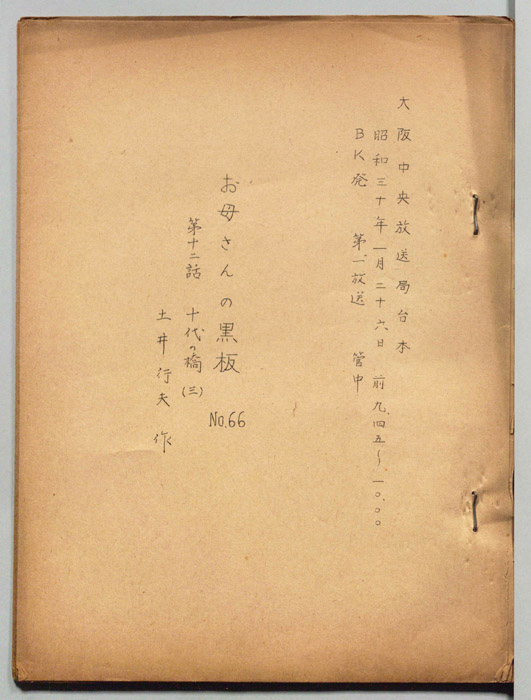 大阪中央放送局台本
昭和三十年一月二十六日 前九、四五～一〇、〇〇
BK発 第一放送 管中
お母さんの黒板
No.66
第十二話 十代の橋(三)
土井行夫 作